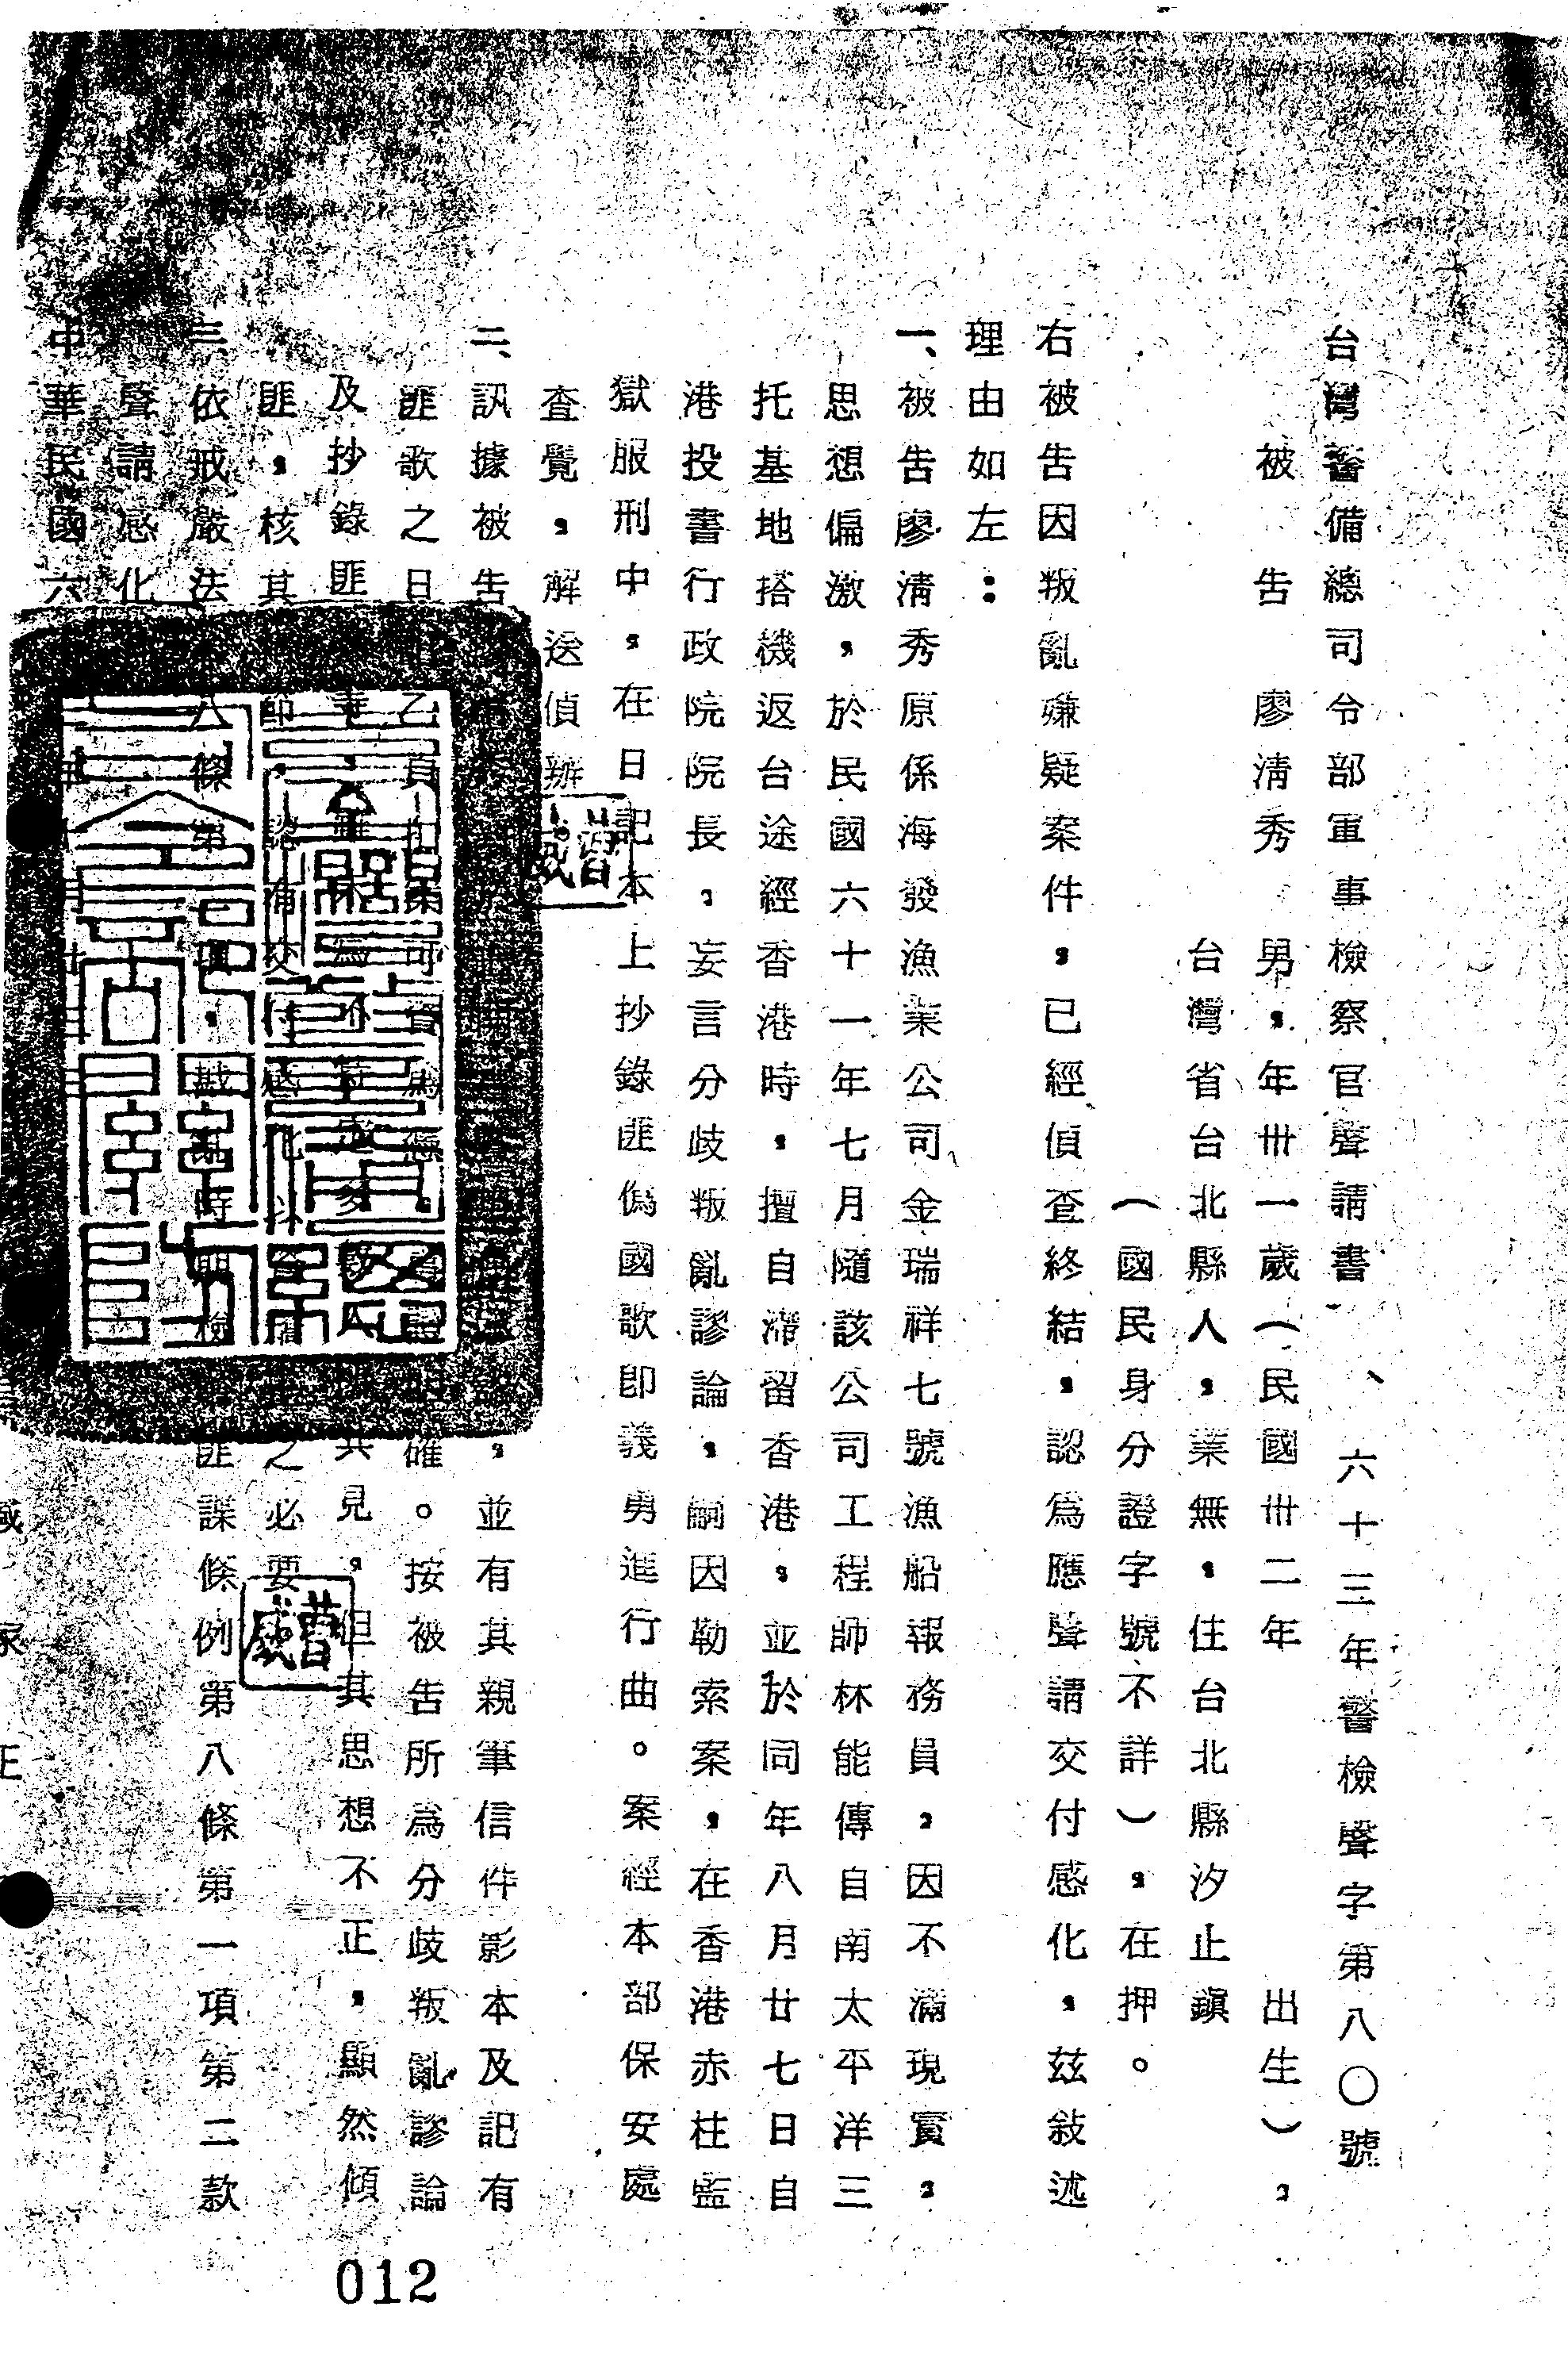 台灣警備總司令部軍事檢察官聲請書 六十三年警檢聲字第八〇號
被告 廖清秀 男，年卅一歲（民國卅二年 出生），
台灣省台北縣人，業無，住台北縣汐止鎮
（國民身分證字號不詳），在押。
右被告因叛亂嫌疑案件，已經偵查終結，認為應聲請交付感化，茲敍述
理由如左：
一、被告廖清秀原係海發漁業公司金瑞祥七號漁船報務員，因不滿現實，
思想偏激，於民國六十一年七月隨該公司工程師林能傳自南太平洋三
托基地搭機返台途經香港時，擅自滯留香港，並於同年八月廿七日自
港投書行政院院長，妄言分歧叛亂謬論，嗣因勒索案，在香港赤柱監
獄服刑中，在日記本上抄錄匪偽國歌即義勇進行曲。案經本部保安處
查覺，解送偵辦
二、訊據被告 ，並有其親筆信件影本及記有
匪歌之日 乙頁扣案可資為憑， 證明確。按被告所為分歧叛亂謬論
及抄錄匪 共見，但其思想不正，顯然傾
匪，核其 即，認有交付感化 之必要
三、依戒嚴法 八條第 項，戡亂時期檢 匪諜條例第八條第一項第二款
聲請感化
中華民國六 年 月廿 日
012